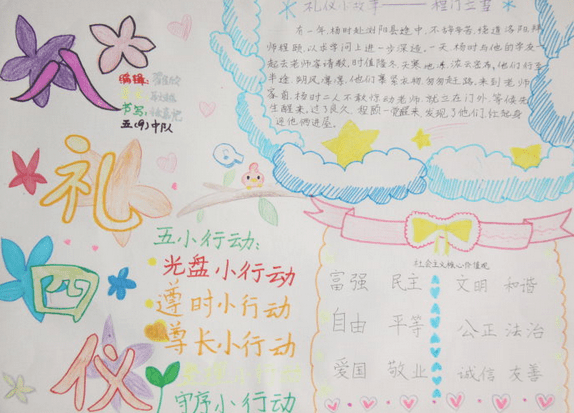 八
礼
四
仪
编辑:
书写:
五(9)中队
礼仪小故事——程门立雪
有一年,杨时赴浏阳县途中,不辞劳苦,绕道洛阳,拜
师程颐,以求学问上进一步深造。一天,杨时与他的学友一
起去老师家请教,时值隆冬,天寒地冻,浓云密布,他们行至
半途,朔风凛凛,他们裹紧衣物,匆匆赶路,来到老师
家
杨时二人不敢惊动老师,就立在门外,等候先
生醒来,过了良久,程颐一觉醒来,发现了他们,
进他俩进屋。
五小行动:
光盘小行动
遵时小行动
尊长小行动
守序小行动
社会主义核心价值观
富强 民主 文明 和谐
自由 平等 公正 法治
爱国 敬业 诚信 友善